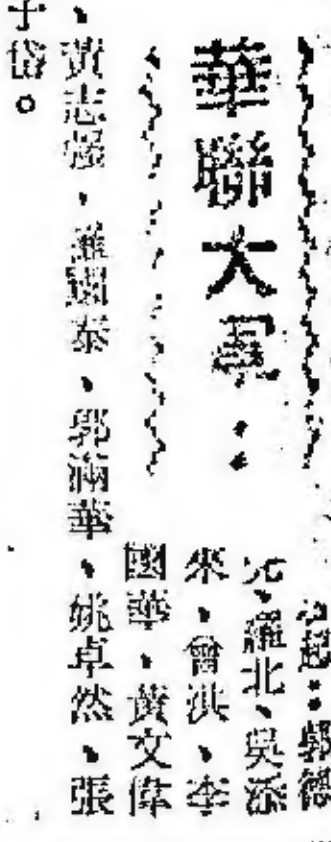 華聯大軍：
起：郭德
元、羅北、吳添
來、曾洪、李
國華、黃文偉
、黃志強、羅國泰、郭滿華、姚卓然、張
子岱。